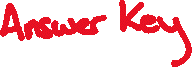 Answer Key